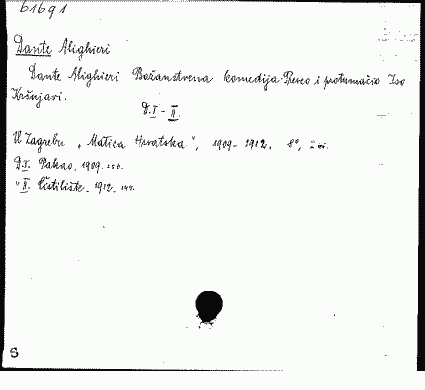 61691
Dante Alighieri
Dante Alighieri Božanstvena komedija. Preveo i protumačio Iso
Kršnjavi.
D. I - II.
U Zagrebu „Matica Hrvatska", 1909-1912. 8°,
D. I. Pakao, 1909.
" II. Čistilište, 1912.
S